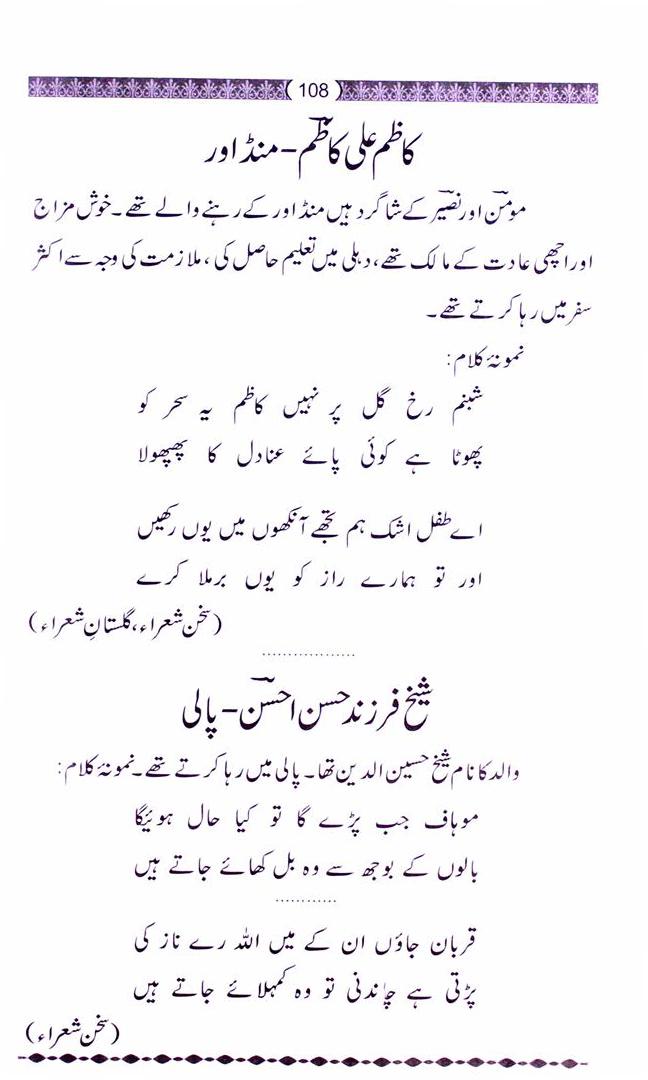 108
کاظم علی کاظمؔ - منڈاور
مومنؔ اور نصیرؔ کے شاگرد ہیں منڈاور کے رہنے والے تھے۔ خوش مزاج
اور اچھی عادت کے مالک تھے، دہلی میں تعلیم حاصل کی، ملازمت کی وجہ سے اکثر
سفر میں رہا کرتے تھے۔
نمونۂ کلام:
شبنم رخ گل پر نہیں کاظم یہ سحر کو
پھوٹا ہے کوئی پائے عنادل کا پھپھولا
اے طفل اشک ہم تجھے آنکھوں میں یوں رکھیں
اور تو ہمارے راز کو یوں برملا کرے
(سخن شعراء، گلستانِ شعراء)
..................
شیخ فرزند حسن احسنؔ - پالی
والد کا نام شیخ حسین الدین تھا۔ پالی میں رہا کرتے تھے۔ نمونۂ کلام:
موباف جب پڑے گا تو کیا حال ہوئیگا
بالوں کے بوجھ سے وہ بل کھائے جاتے ہیں
............
قربان جاؤں ان کے میں اللہ رے ناز کی
پڑتی ہے چاندنی تو وہ کمہلائے جاتے ہیں
(سخن شعراء)